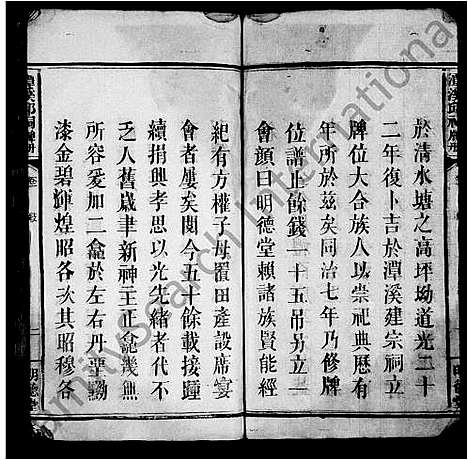 於清水塘之高坪坳道光二十
二年復卜吉於潭溪建宗祠立
牌位大合族人以崇祀典歷有
年所於茲矣同治七年乃修牌
位譜止餘錢一十五吊另立一
會顔曰明德堂賴諸族賢能經
紀有方權子母置田產設席宴
會者屢矣閱今五十餘載接踵
續捐興孝思以光先緒者代不
乏人舊歲聿新神主正龕幾無
所容爰加二龕於左右丹堊黝
漆金碧輝煌昭各次其昭穆各
潭溪邱祠牌册
卷
二
明德堂
familysearch international